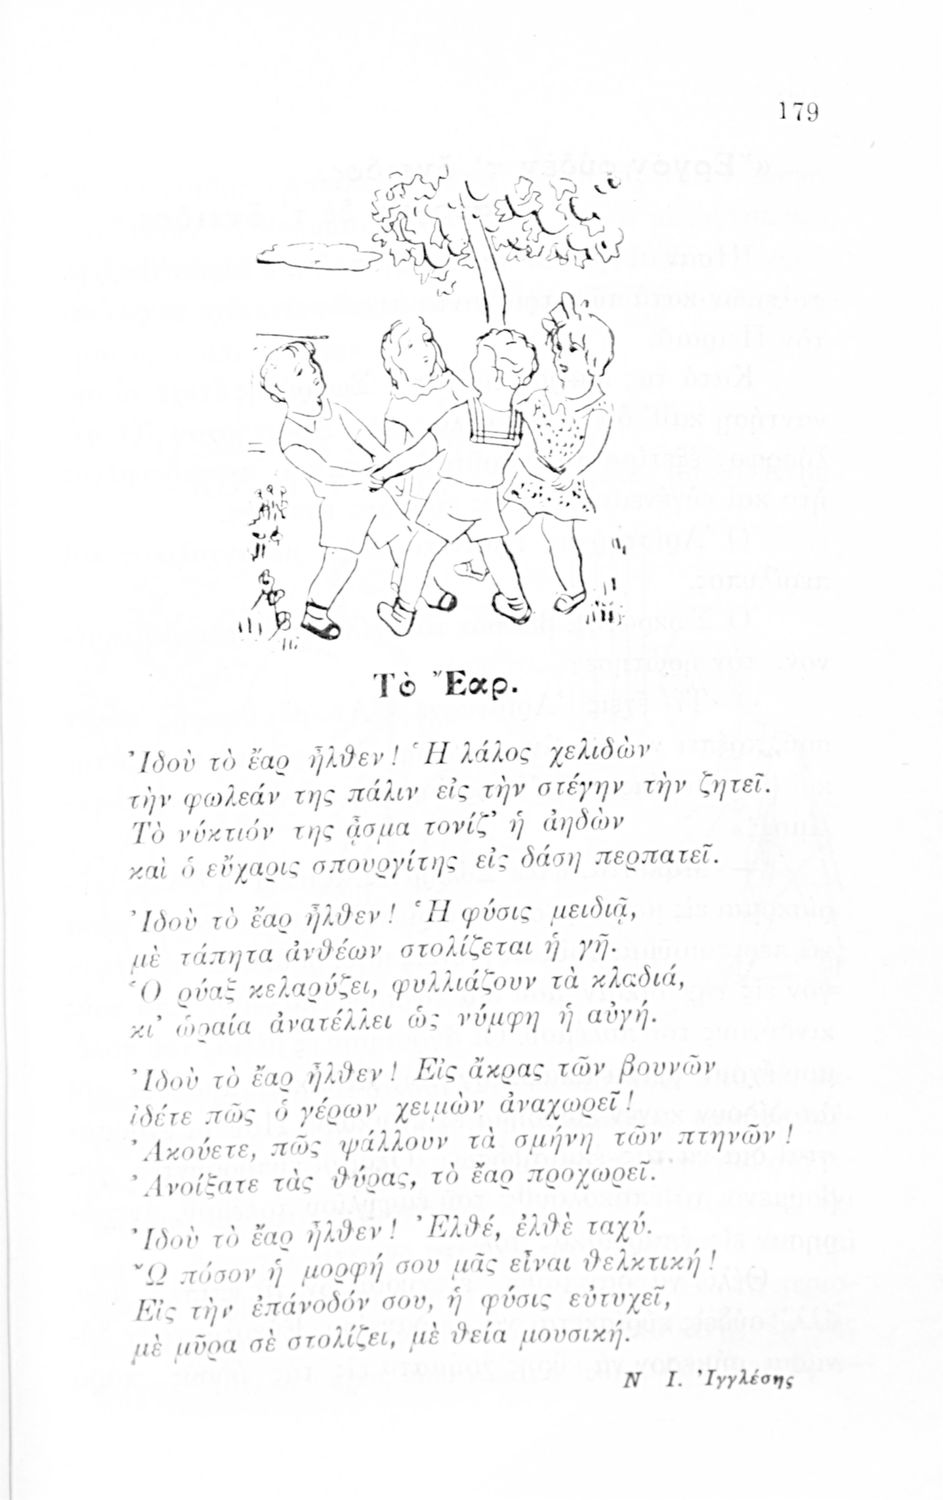 179
Τὸ Ἔαρ.
Ἰδοὺ τὸ ἔαρ ἦλθεν! Ἡ λάλος χελιδὼν
τὴν φωλεάν της πάλιν εἰς τὴν στέγην τὴν ζητεῖ.
Τὸ νύκτιόν της ᾆσμα τονίζ’ ἡ ἀηδὼν
καὶ ὁ εὔχαρις σπουργίτης εἰς δάση περπατεῖ.
Ἰδοὺ τὸ ἔαρ ἦλθεν! Ἡ φύσις μειδιᾷ,
μὲ τάπητα ἀνθέων στολίζεται ἡ γῆ.
Ὁ ρύαξ κελαρύζει, φυλλιάζουν τὰ κλαδιά,
κι’ ὡραία ἀνατέλλει ὡς νύμφη ἡ αὐγή.
Ἰδοὺ τὸ ἔαρ ἦλθεν! Εἰς ἄκρας τῶν βουνῶν
ἰδέτε πῶς ὁ γέρων χειμὼν ἀναχωρεῖ!
Ἀκούετε, πῶς ψάλλουν τὰ σμήνη τῶν πτηνῶν!
Ἀνοίξατε τὰς θύρας, τὸ ἔαρ προχωρεῖ.
Ἰδοὺ τὸ ἔαρ ἦλθεν! Ἐλθέ, ἐλθὲ ταχύ.
Ὢ πόσον ἡ μορφή σου μᾶς εἶναι θελκτική!
Εἰς τὴν ἐπάνοδόν σου, ἡ φύσις εὐτυχεῖ,
μὲ μῦρα σὲ στολίζει, μὲ θεία μουσική.
Ν Ι. Ἰγγλέσης